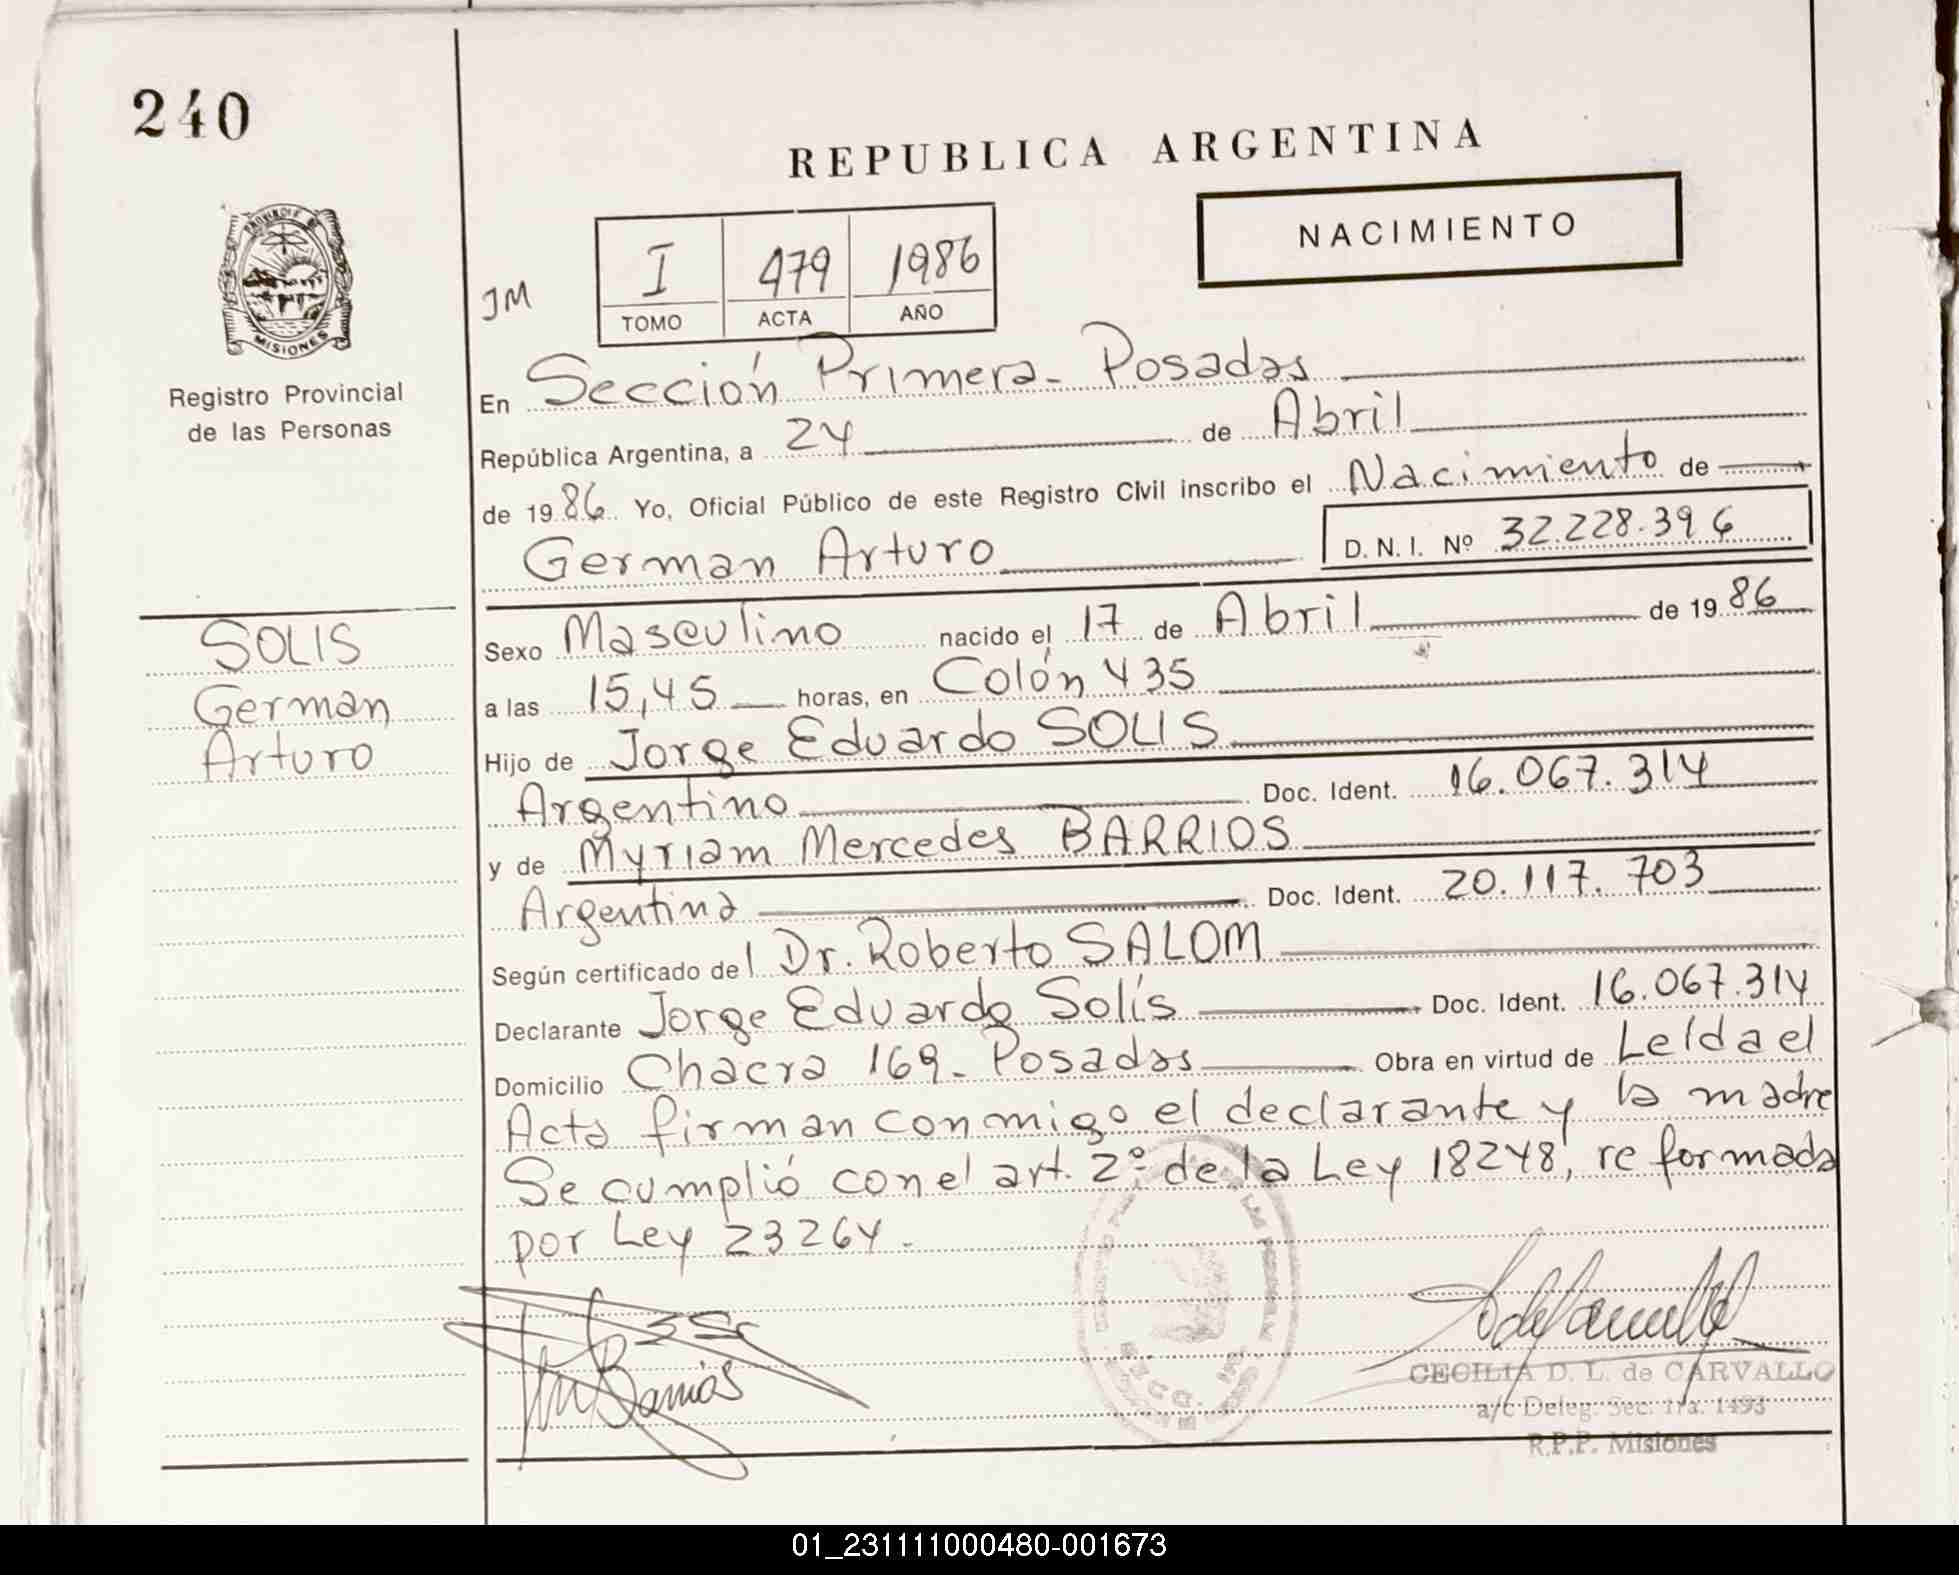 240
REPUBLICA ARGENTINA
NACIMIENTO
PROVINCIA DE
MISIONES
Registro Provincial
de las Personas
JM
I 479 1986
TOMO ACTA AÑO
En Sección Primera - Posadas
República Argentina, a 24 de Abril
de 1986 Yo, Oficial Público de este Registro Civil inscribo el Nacimiento de
German Arturo D. N. I. Nº 32.228.396
SOLIS
German
Arturo
Sexo Masculino nacido el 17 de Abril de 1986
a las 15,45 horas, en Colón 435
Hijo de Jorge Eduardo SOLIS
Argentino Doc. Ident. 16.067.314
y de Myriam Mercedes BARRIOS
Argentina Doc. Ident. 20.117.703
Según certificado del Dr. Roberto SALOM
Declarante Jorge Eduardo Solís Doc. Ident. 16.067.314
Domicilio Chacra 169 - Posadas Obra en virtud de Leída el
Acta firman conmigo el declarante y la madre
Se cumplió con el art. 2º de la Ley 18248, reformada
por Ley 23264.
Barrios
CECILIA D. L. de CARVALLO
a/c Deleg. Sec. 1ra. 1493
R.P.P. Misiones
01_231111000480-001673